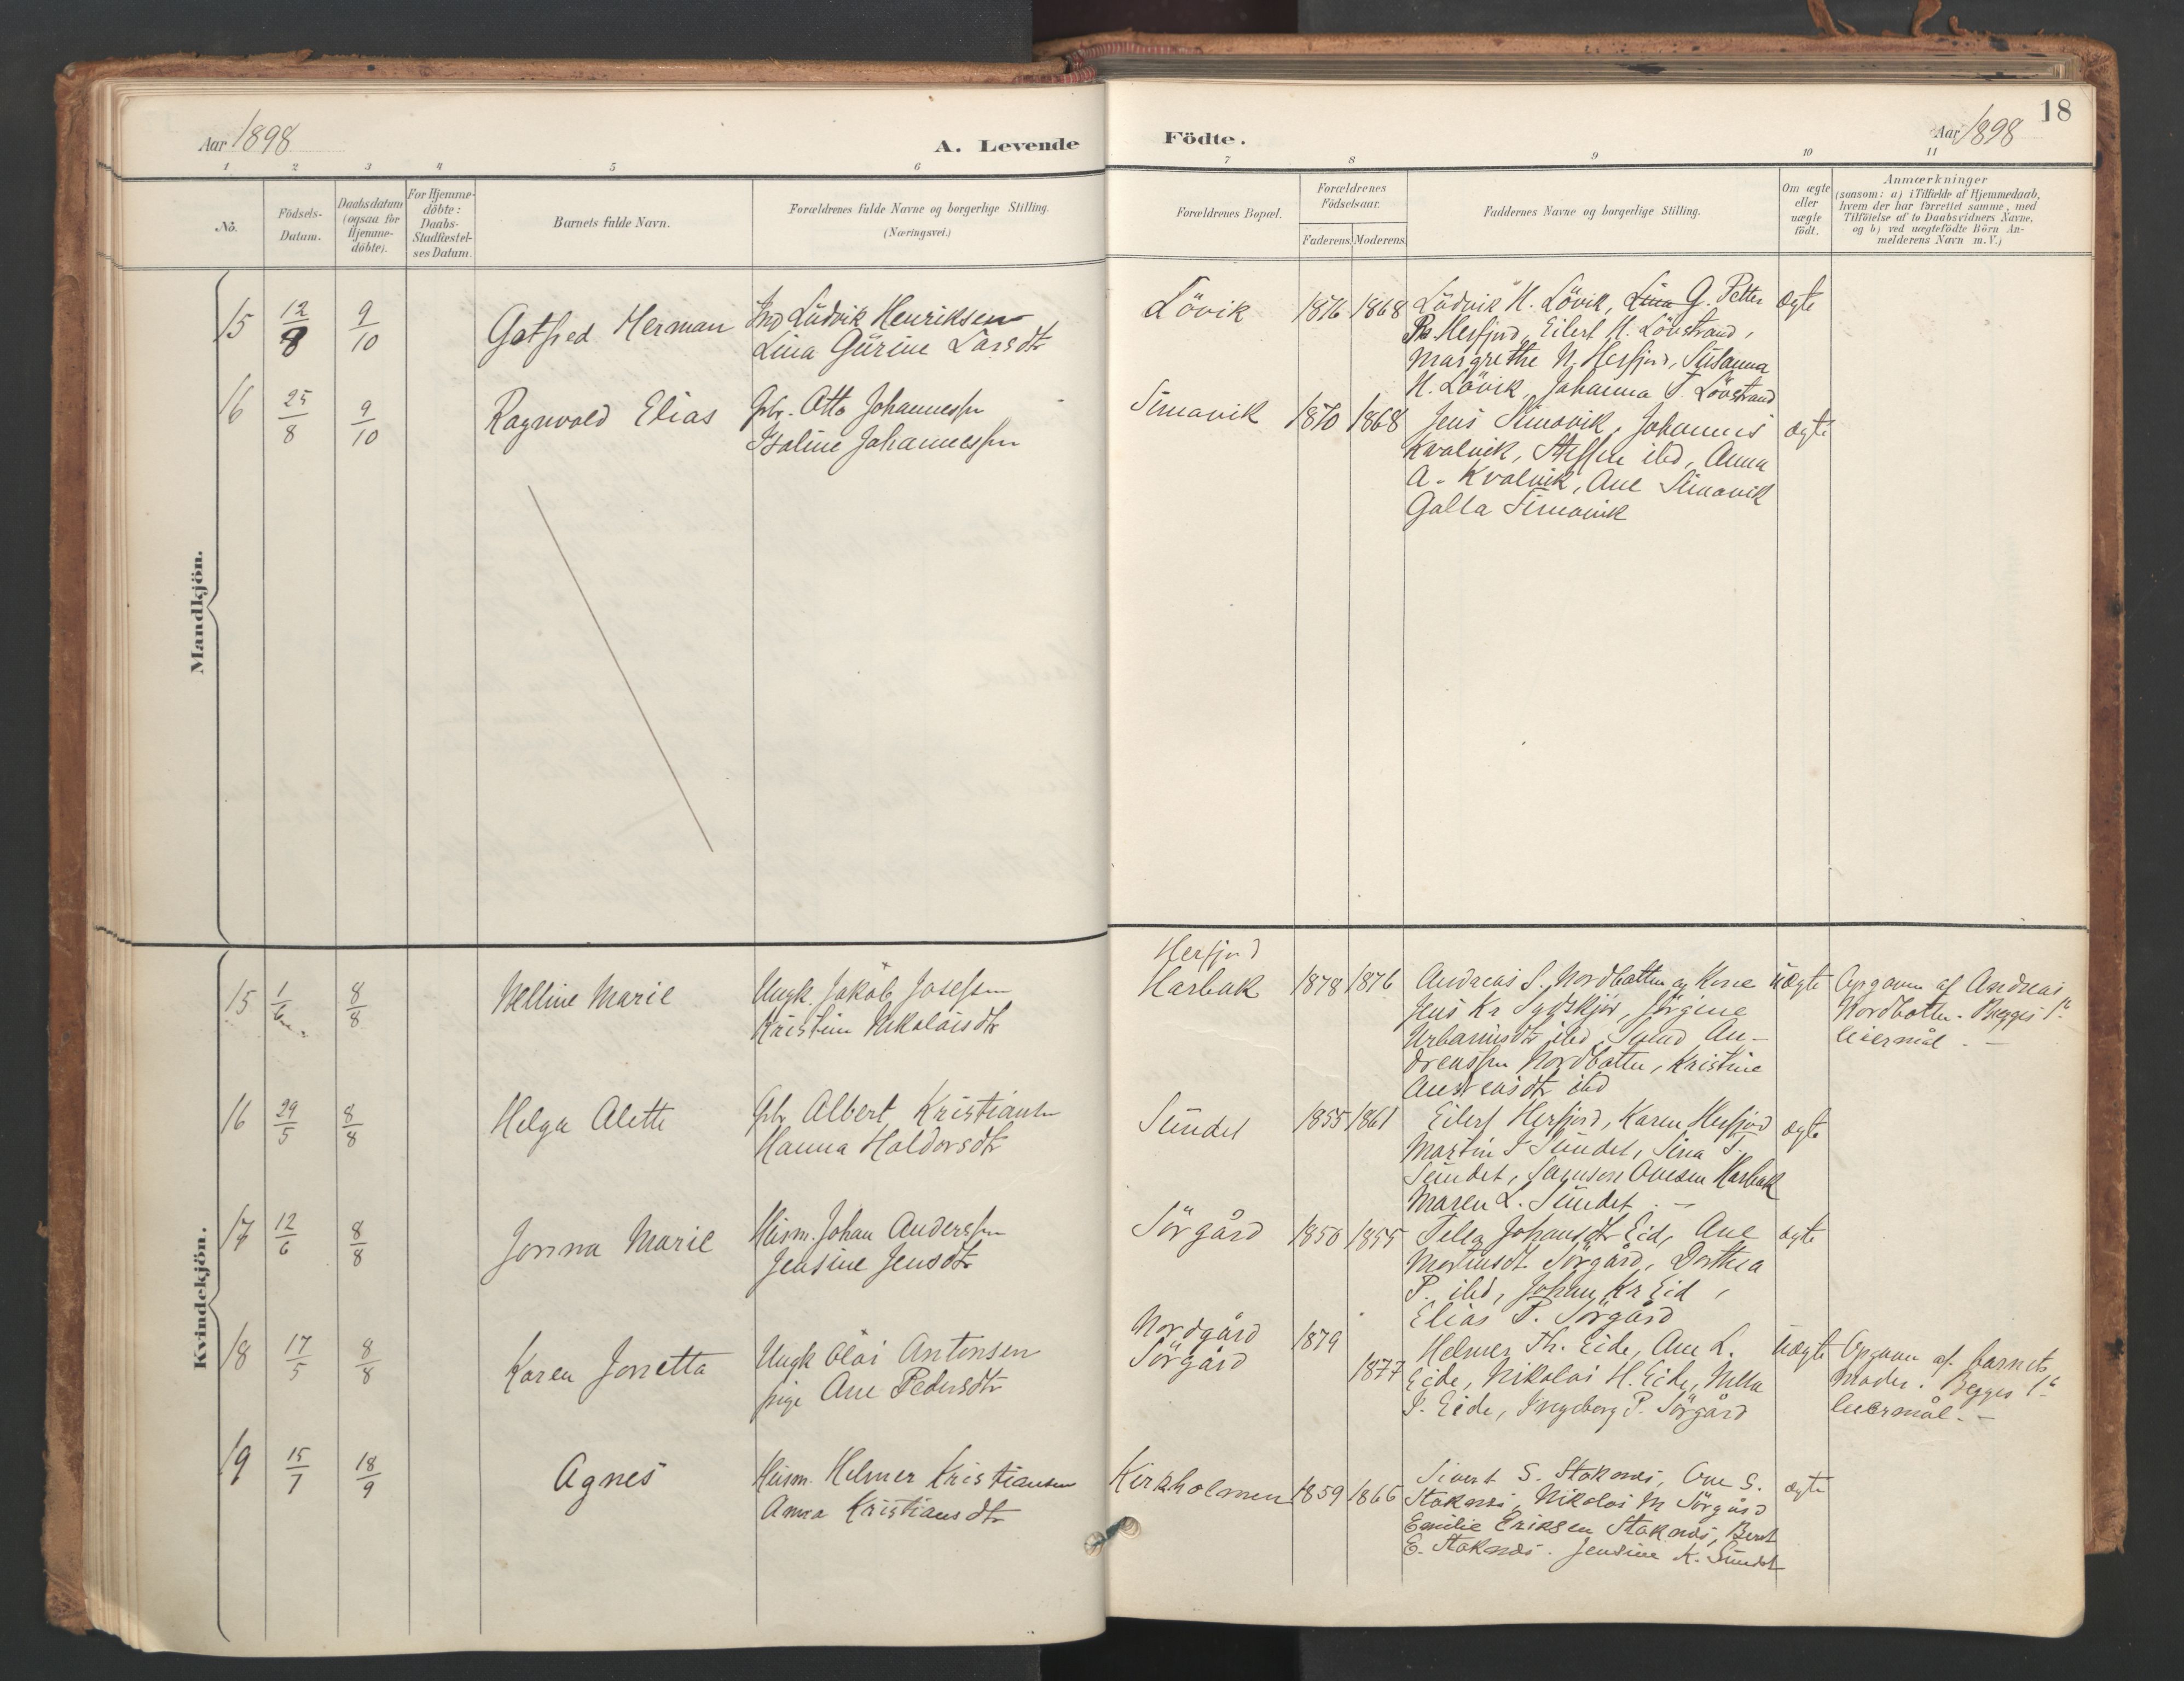 Aar 1898
A. Levende
Födte.
Aar 1898
18
1 2 3 4 5 6 7 8 9 10 11
No.
Födsels-
Datum.
Daabsdatum
(ogsaa for
Hjemme-
döbte).
For Hjemme-
döbte:
Daabs-
Stadfæstel-
ses Datum.
Barnets fulde Navn.
Forældrenes fulde Navne og borgerlige Stilling.
(Næringsvei.)
Forældrenes Bopæl.
Forældrenes
Födselsaar.
Faderens. Moderens.
Faddernes Navne og borgerlige Stilling.
Om ægte
eller
uægte
födt.
Anmærkninger
(saasom: a) i Tilfælde af Hjemmedaab,
hvem der har forrettet samme, med
Tilföielse af to Daabsvidners Navne,
og b) ved uægtefödte Börn An-
melderens Navn m. V.)
Mandkjön.
15 12/8 9/10 Gotfred Herman
Ind Ludvik Henriksen
Lina Gurine Larsdtr
Lövik 1876 1868
Ludvik H. Lövik, Lina G. Petter
Herfjord, Eilert H. Lövstrand,
Margrethe N. Herfjord, Susanna
H. Lövik, Johanna T. Lövstrand
ægte
16 25/8 9/10 Ragnvald Elias
Gbr. Otto Johannessen
Isaline Johannessen
Simavik 1870 1868
Jens Simavik, Johannes
Kvalvik, Steffen ibd, Anna
A. Kvalvik, Ane Simavik
Galla Simavik
ægte
Kvindekjön.
15 1/6 8/8 Nelline Marie
Ungk. Jakob Josefsen
Kristine Nikolaisdtr
Herfjord
Harbak 1878 1876
Andreas S. Nordbotten og Kone
Jens Kr Sydskjör, Jörgine
Urbanusdtr ibd, An-
dreassen Nordbotten, Kristine
Andreasdtr ibd
uægte
Opgaven af Andreas
Nordbotten. Begges 1ste
leiermål. -
16 29/5 8/8 Helga Alette
Gbr Albert Kristiansen
Hanna Haldorsdtr
Sundet 1855 1861
Eilert Herfjord, Karen Herfjord
Martin I Sundet, Sina T.
Sundet, Ovesen Harbak
Maren L. Sundet. -
ægte
17 12/6 8/8 Jonna Marie
Husm. Johan Anderssen
Jensine Jensdtr
Sörgård 1850 1855
Johansdtr Eid, Ane
Martinsdt Sörgård, Dorthea
P. ibd, Johan Kr Eid,
Elias P. Sörgård
ægte
18 17/5 8/8 Karen Jonetta
Ungk Olai Antonsen
pige Ane Pedersdtr
Nordgård 1879
Sörgård 1877
Helmer Th. Eide, Ane L.
Eide, Nikolai H. Eide, Mella
J. Eide, Ingeborg P. Sörgård
uægte
Opgaven af barnets
Moder. Begges 1ste
leiermål. -
19 15/7 18/9 Agnes
Husm. Helmer Kristiansen
Anna Kristiansdtr
Kirkholmen 1859 1866
Sivert S. Stoknes, Ane S.
Stoknes, Nikolai M Sörgård
Emilie Eriksen Stoknes, Bernt
E. Stoknes. Jensine K. Sundet
ægte